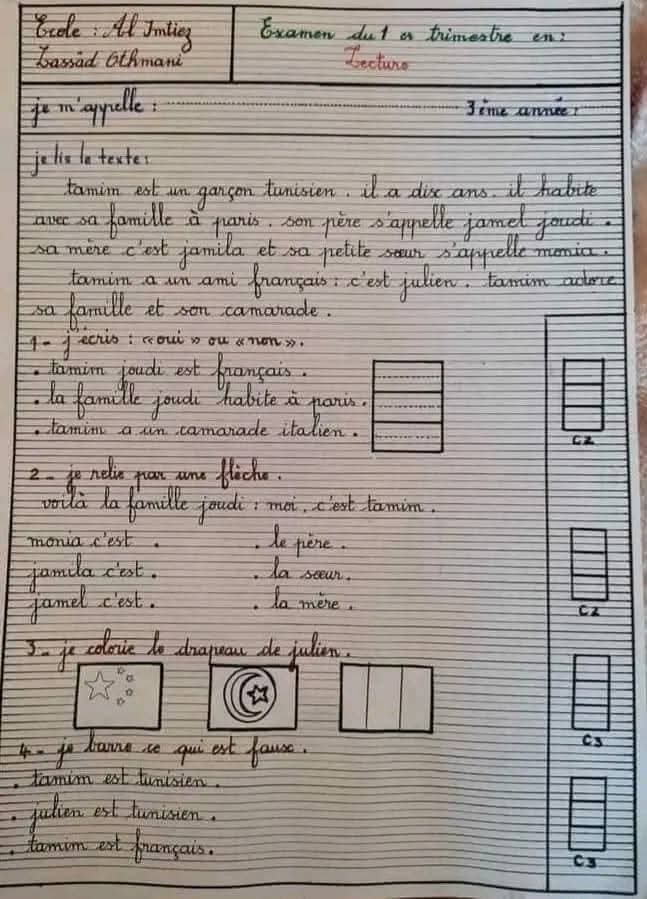 Ecole : Al Imtiez
Lassâd Othmani
Examen du 1 er trimestre en :
Lecture
je m'appelle : 3 ème année :
je lis le texte :
tamim est un garçon tunisien . il a dix ans . il habite
avec sa famille à paris . son père s'appelle jamel joudi .
sa mère c'est jamila et sa petite sœur s'appelle monia .
tamim a un ami français : c'est julien . tamim adore
sa famille et son camarade .
1 - j'écris : « oui » ou « non » .
. tamim joudi est français .
. la famille joudi habite à paris .
. tamim a un camarade italien .
C2
2 - je relie par une flèche .
voilà la famille joudi : moi , c'est tamim .
monia c'est . . le père .
jamila c'est . . la sœur .
jamel c'est . . la mère .
C2
3 - je colorie le drapeau de julien .
C3
4 - je barre ce qui est faux .
. tamim est tunisien .
. julien est tunisien .
. tamim est français .
C3